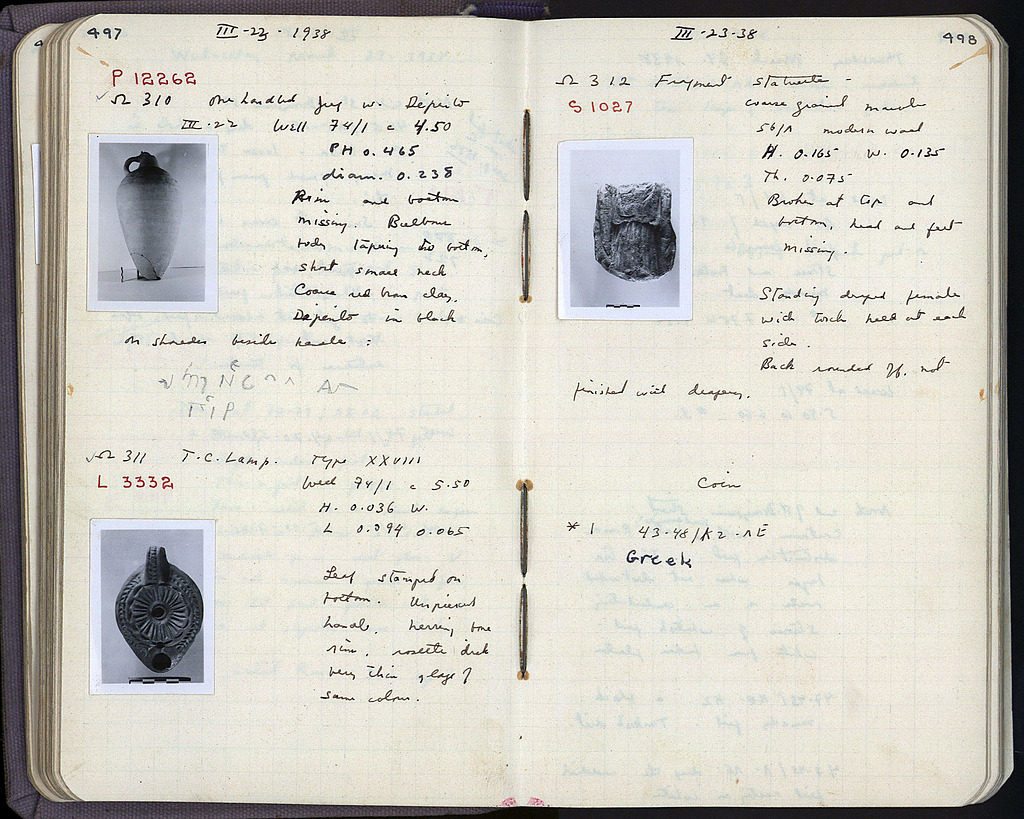 497
III-22-1938
P 12262
Ω 310 one handled jug w. Dipinto
III-22 Well 74/1 c 4.50
PH 0.465
diam. 0.238
Rim and bottom
missing. Bulbous
body tapering to bottom,
short small neck
Coarse red brown clay.
Dipinto in black
on shoulder beside handle :
Ω 311 T.C. Lamp. Type XXVIII
L 3332
Well 74/1 c 5.50
H. 0.036 W.
L 0.094 0.065
Leaf stamped on
bottom. Unpierced
handle, herring bone
rim, rosette disk
very thin glaze of
same colour.
III-23-38
498
Ω 312 Fragment statuette -
S 1027
coarse grained marble
56/Λ modern wall
H. 0.165 W. 0.135
Th. 0.075
Broken at top and
bottom, head and feet
missing.
Standing draped female
with torch held at each
side.
Back rounded off, not
finished with drapery.
Coin
* 1 43-48/K2 ΛE
Greek